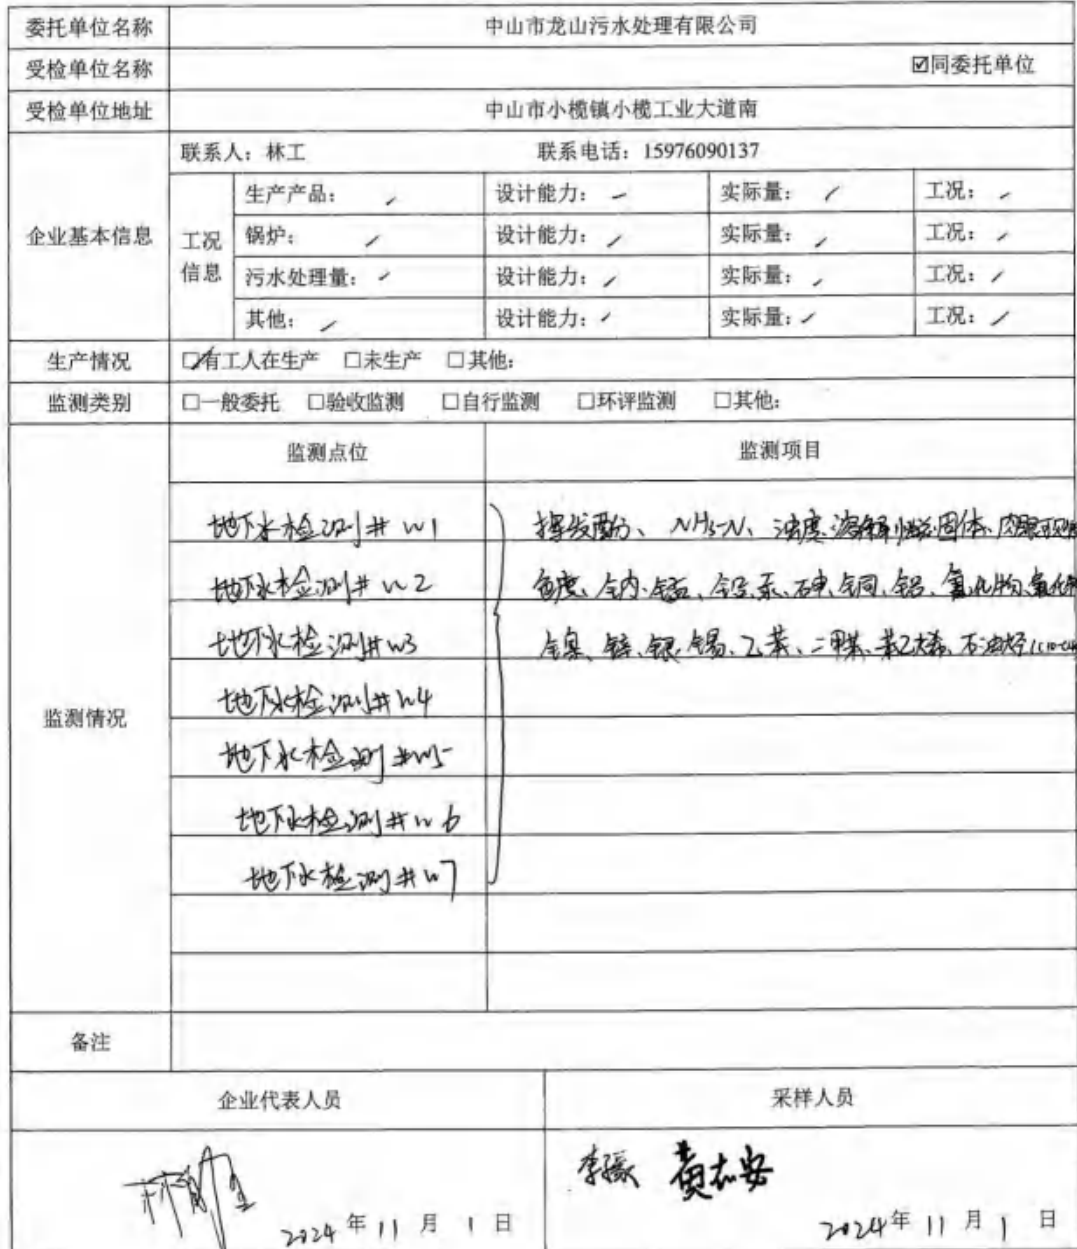 委托单位名称 中山市龙山污水处理有限公司
受检单位名称 ☑同委托单位
受检单位地址 中山市小榄镇小榄工业大道南
企业基本信息
联系人：林工 联系电话：15976090137
工况信息
生产产品： / 设计能力： / 实际量： / 工况： /
锅炉： / 设计能力： / 实际量： / 工况： /
污水处理量： / 设计能力： / 实际量： / 工况： /
其他： / 设计能力： / 实际量： / 工况： /
生产情况 ☑有工人在生产 □未生产 □其他：
监测类别 □一般委托 □验收监测 □自行监测 □环评监测 □其他：
监测情况
监测点位 监测项目
地下水检测井W1 挥发酚、NH3-N、浊度、溶解性总固体、肉眼可见
地下水检测井W2 色度、钠、锰、铅、汞、砷、铜、铝、氰化物、氟化物
地下水检测井W3 镍、锌、银、锡、乙苯、二甲苯、苯乙烯、石油烃(C10-C40
地下水检测井W4
地下水检测井W5
地下水检测井W6
地下水检测井W7
备注
企业代表人员 采样人员
黄志安
2024年11月1日 2024年11月1日